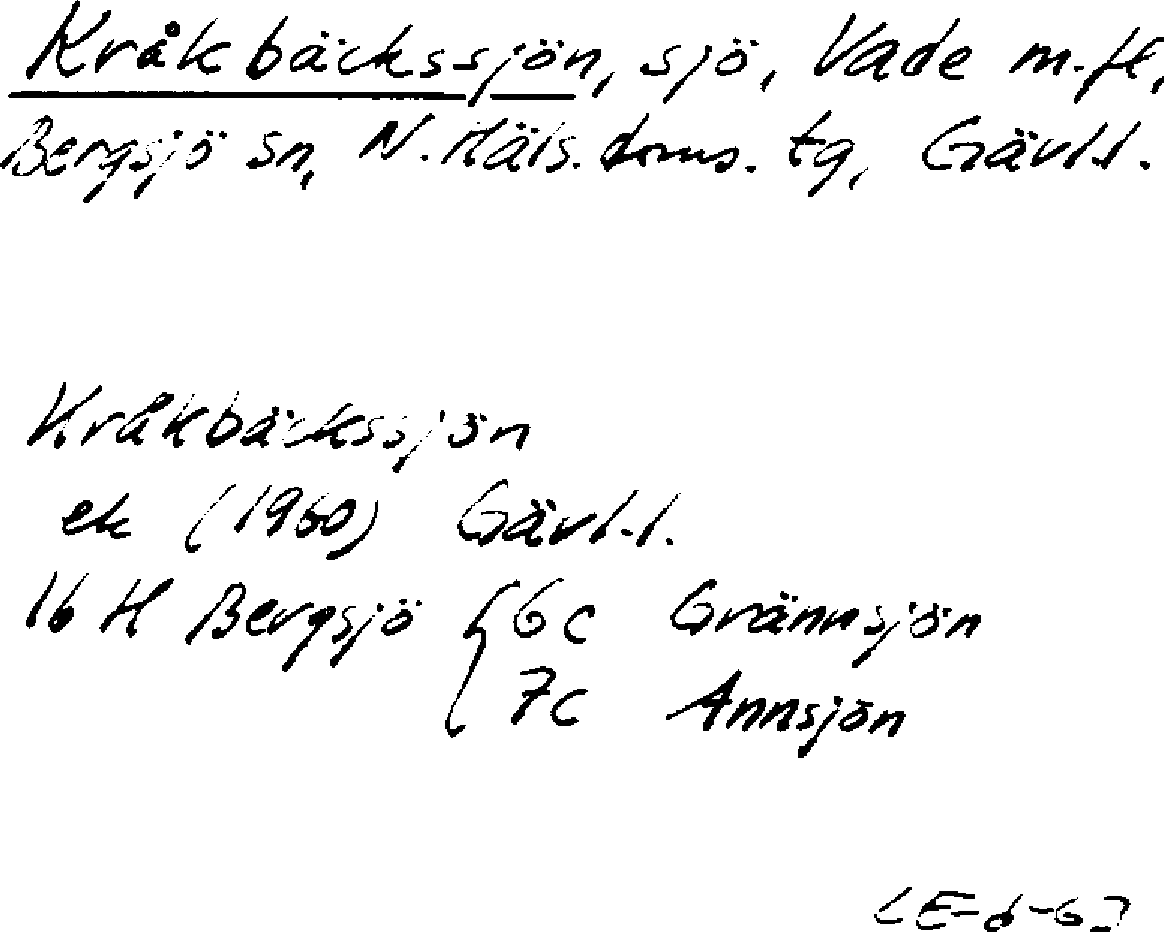 Kråkbäckssjön, sjö, Vade m.fl,
Bergsjö sn, N. Häls. doms. tg, Gävl.l.
Kråkbäckssjön
ek (1960) Gävl.l.
16 H Bergsjö { 6c Grännsjön
7c Annsjön